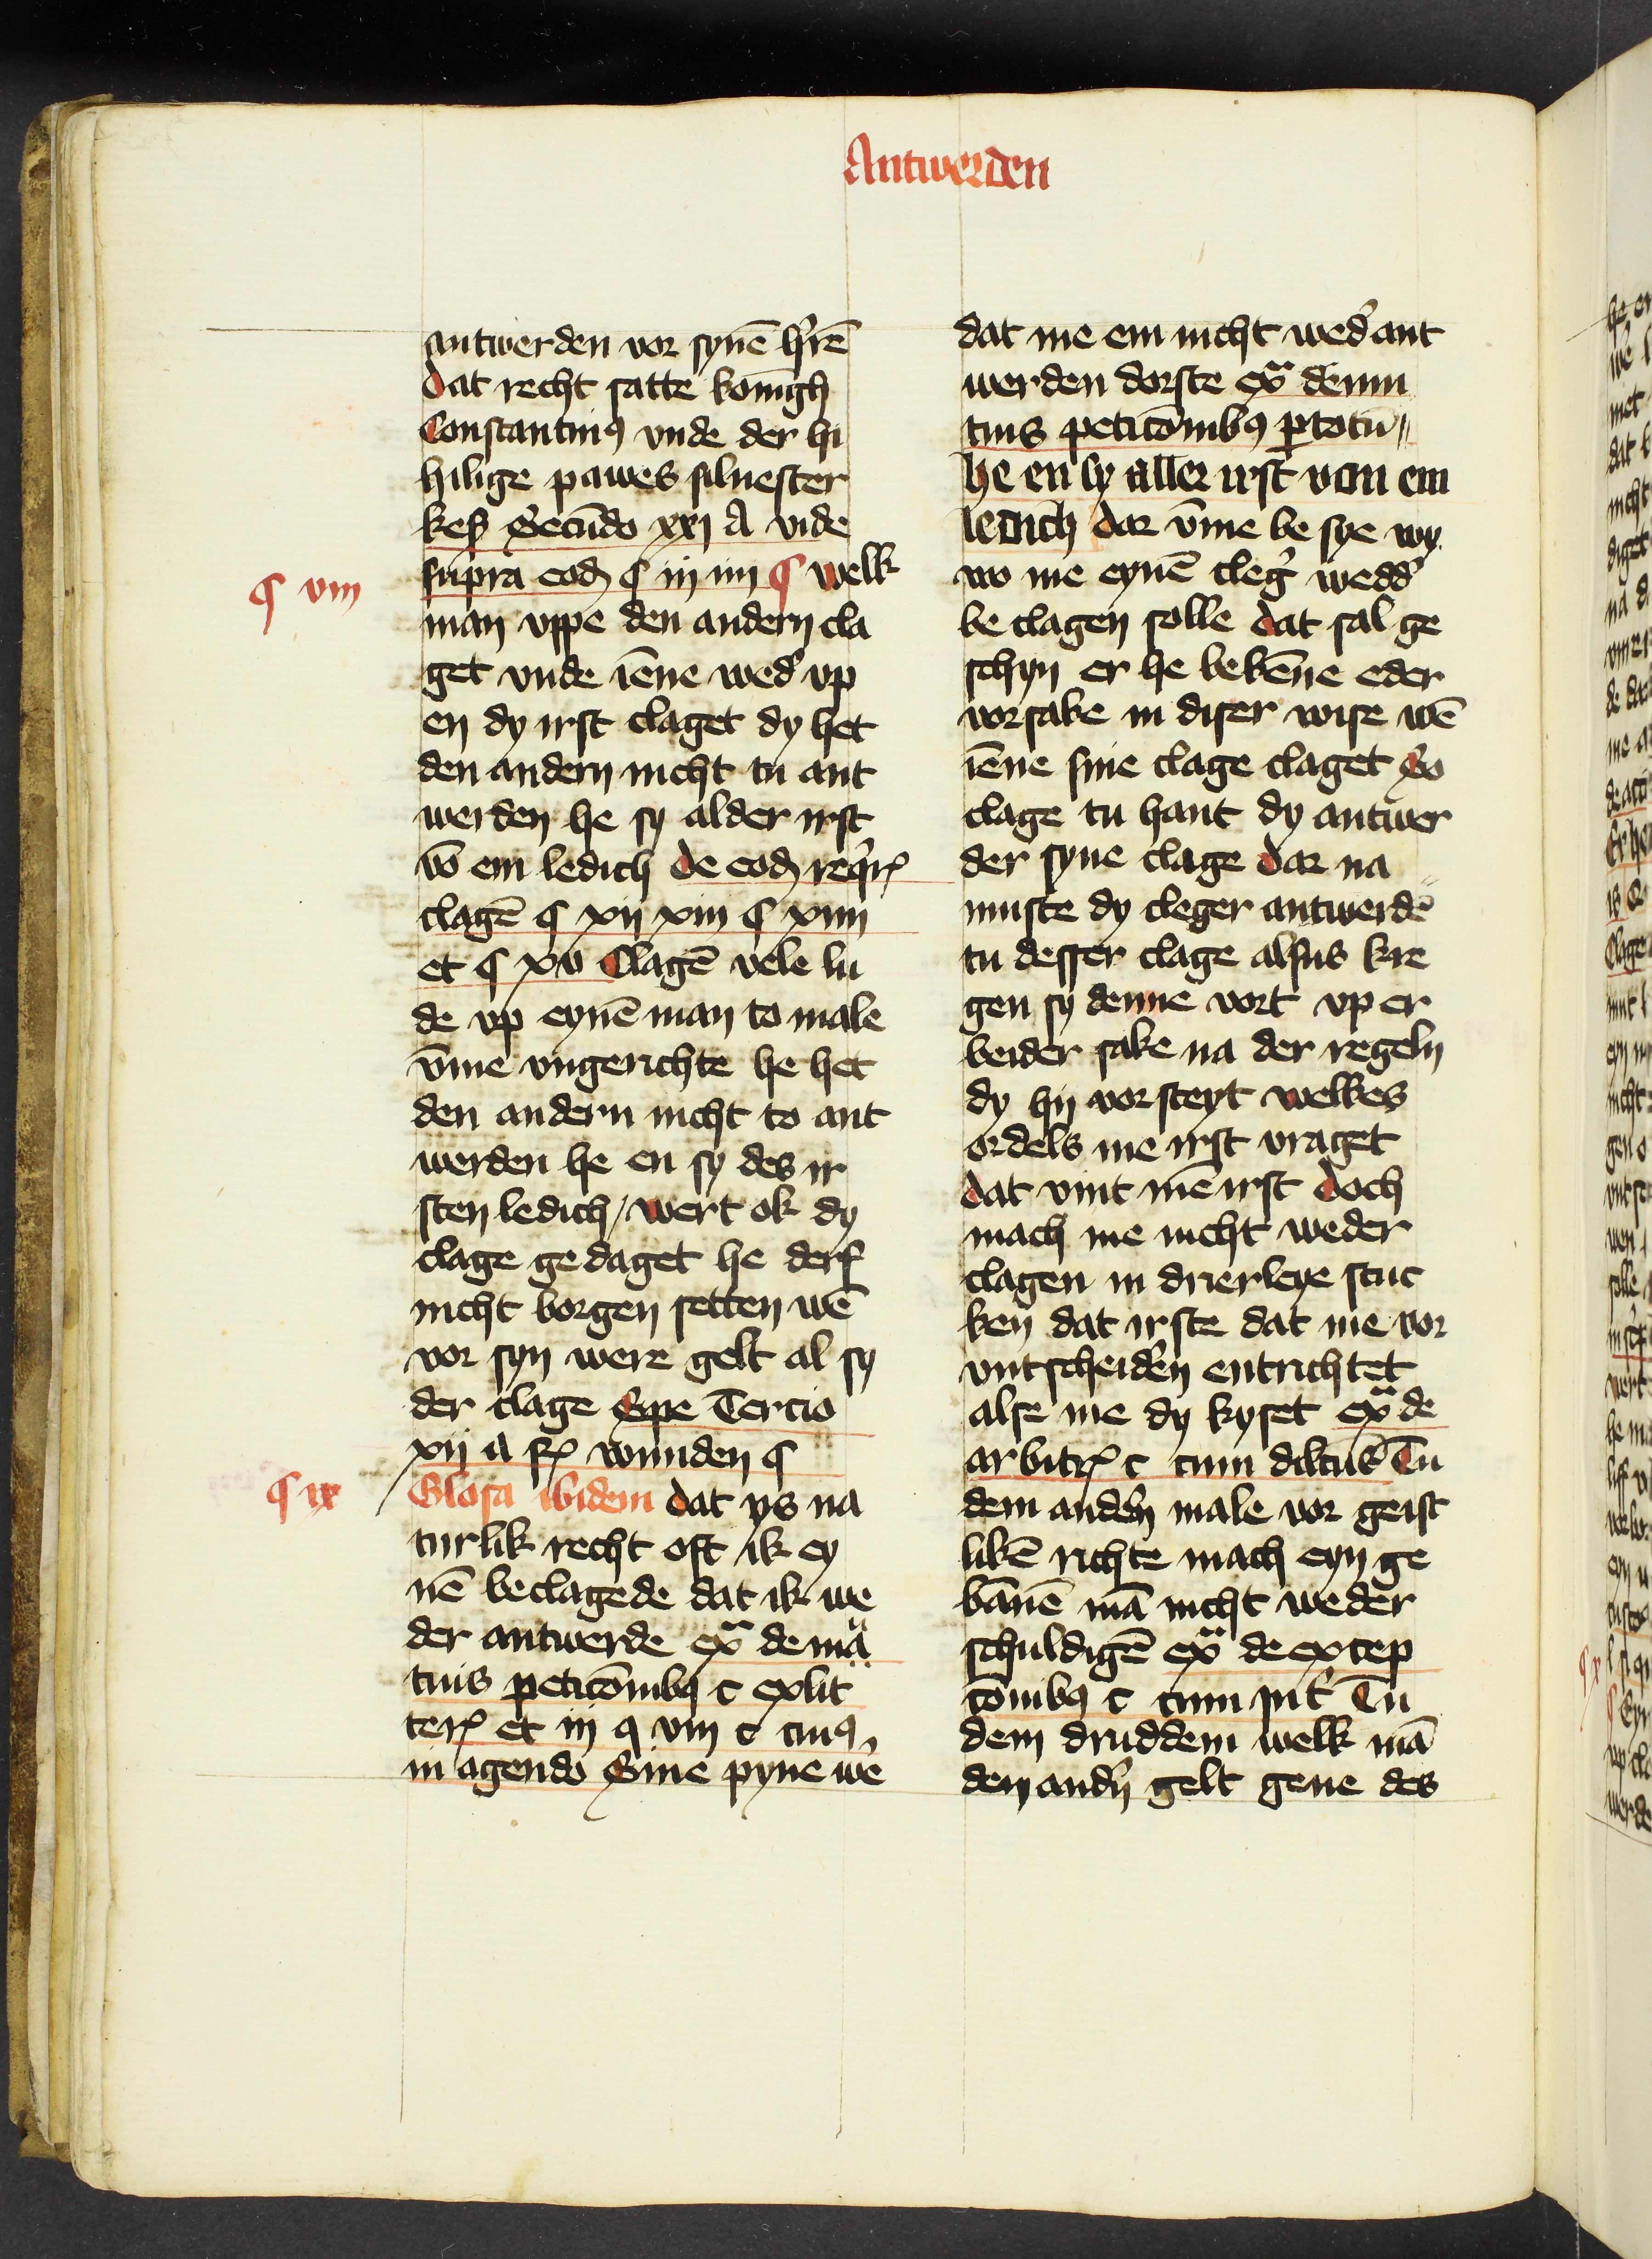 Antwerden
antwerden vor synē h̓rē
dat recht satte konīgh
Constantinꝰ vnde der hi
hilige pawes siluester
keſz Secūdo xxj A vide
supra eod̄ ¶ iij iiij ¶ welk
¶ viij
man vppe den andern cla
get vnde iēne wed̓ vp
en dy irst claget dy het
den andern nicht tu ant
werden he sy alder irst
vō em ledich de eod̄ req̓rꝭ
clagē ¶ xij xiij ¶ xiiij
et ¶ xv Clagē vele lu
de vp eynē man to male
vm̄e vngerichte he het
den andern nicht to ant
werden he en sy des ir
sten ledich / wert ok dy
clage gedaget he derf
nicht borgen setten wē
vor syn were gelt al sy
der clage Spe Tercio
xij A ſꝭ wunden ¶
¶ ix
Glosa ibidem dat ys na
turlik recht oft ik ey
nē beclagede dat ik we
der antwerde exͣ de mu
tuis peticōnibꝰ c exlit
terꝭ et iij q viij c cuiꝰ
in agendo Sine pyne wē
dat me em nicht wed̓ ant
werden dorste exͣ de mu
tuis peticōnibꝰ ꝑ totū //
he en sy aller irst von em
ledich dar vm̄e be sye wy
wo me eynē cleg̓ wedd̓
be clagen solle dat sal ge
schyn er he bekēne eder
vorsake in diser wise wē
iēne sine clage claget So
clage tu hant dy antwer
der syne clage dar na
muste dy cleger antwerdē
tu desser clage alsus kre
gen sy denne vort vp er
beider sake na der regeln
dy hij vor steyt welkes
ordels me irst vraget
dat vint mē irst doch
mach me nicht weder
clagen in drierleye stuc
ken dat irste dat me vor
vntscheiden entrichtet
alse me dy kyset exͣ de
arbitrꝭ c cum dilctus Tu
dem and̓n male vor geist
likē richte mach eyn ge
bānē mā nicht weder
schuldigē exͣ de excep
cōnibꝰ c cum int̓ Tu
dem druddem welk mā
den and̓n gelt gene des